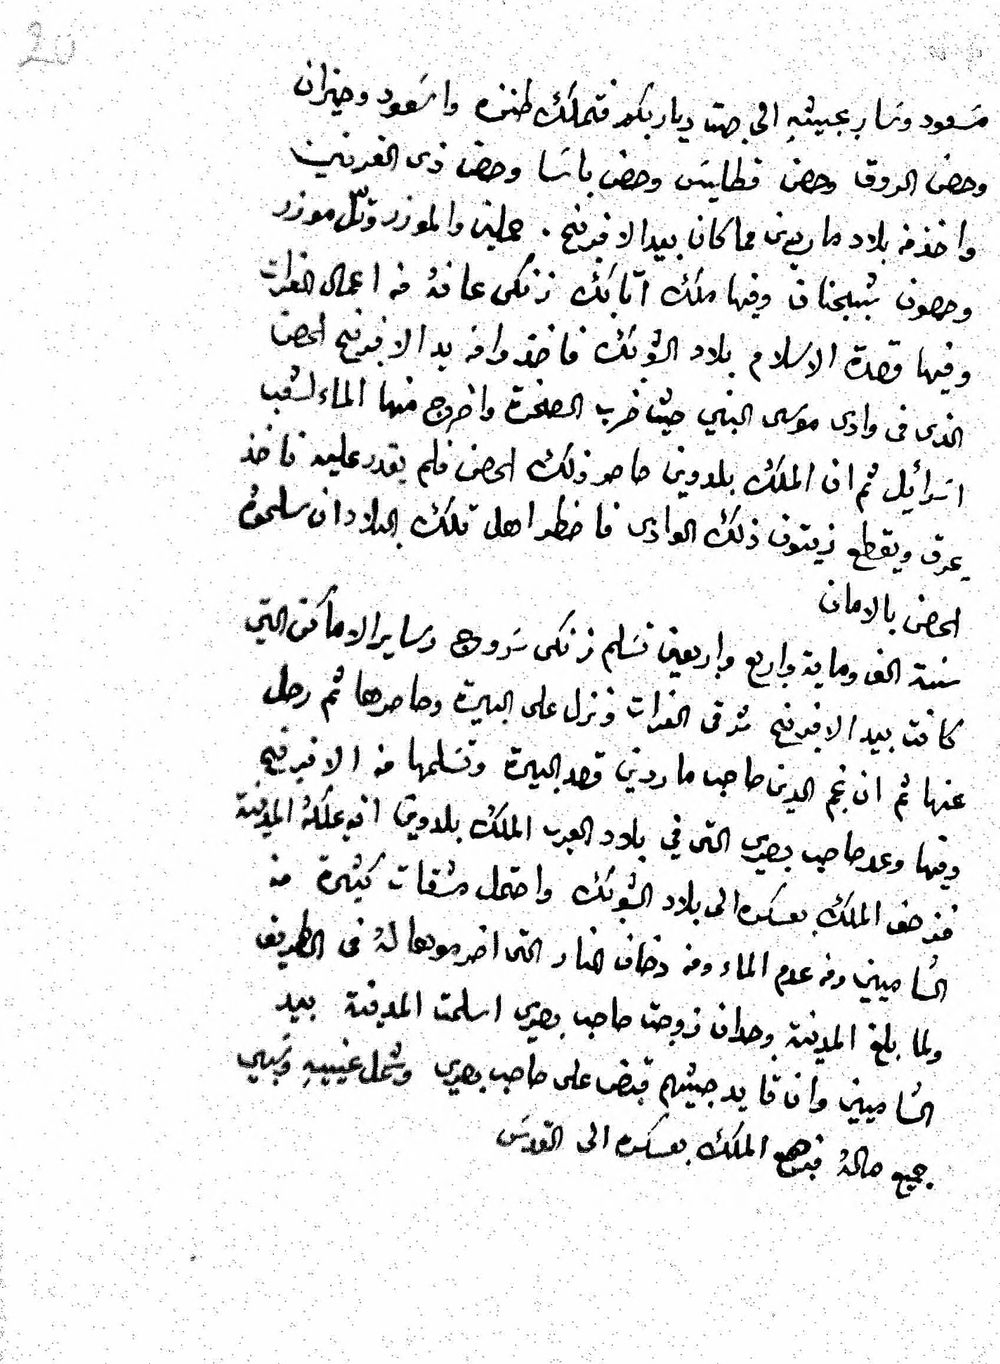 20
مسعود وسار بجيشهِ الى جهت ديار بكر فتملك طنزه واسعود وحيزان
وحصن الروق وحصن قطاليس وحصن باتسا وحصن ذى القرنين
واخذ من بلاد ماردين مما كان بيد الافرنج . جملين والموزر وتلّ موزر
وحصون شبختان وفيها ملك اتابك زنكى عانهُ من اعمال الفرات
وفيها قصدة الاسلام بلاد الشوبك فاخذوا من يد الافرنج الحصن
الذى فى وادى موسى النبي حيث ضرب الصخرة واخرج منها الماء لشعب
اسرائيل ثم ان الملك بلدوين حاصر ذلك الحصن فلم يقدر عليه فاخذ
يحرق ويقطع زيتون ذلك الوادى فاضطر اهل تلك البلاد ان سلموهُ
الحصن بالامان
سنة الف وماية واربع واربعين تسلم زنكى سروج وساير الاماكن التي
كانت بيد الافرنج شرقى الفرات ونزل على البيرة وحاصرها ثم رحل
عنها ثم ان نجم الدين صاحب ماردين قصد البيرة وتسلمها من الافرنج
وفيها وعد صاحب بصرى التى في بلاد العرب الملك بلدوين انه يملكهُ المدينة
فزحف الملك بعسكره الى بلاد الشوبك واحتمل مشقات كثيرة من
الشاميين ومن عدم الماء ومن دخان النار التى اضرموها لهُ فى الطريق
ولما بلغ المدينة وجد ان زوجت صاحب بصرى اسلمت المدينة بيد
الشاميين وان قايد جيشهم قبض على صاحب بصرى وسمل عينيهِ ونهب
جميع مالهُ فرجع الملك بعسكره الى القدس